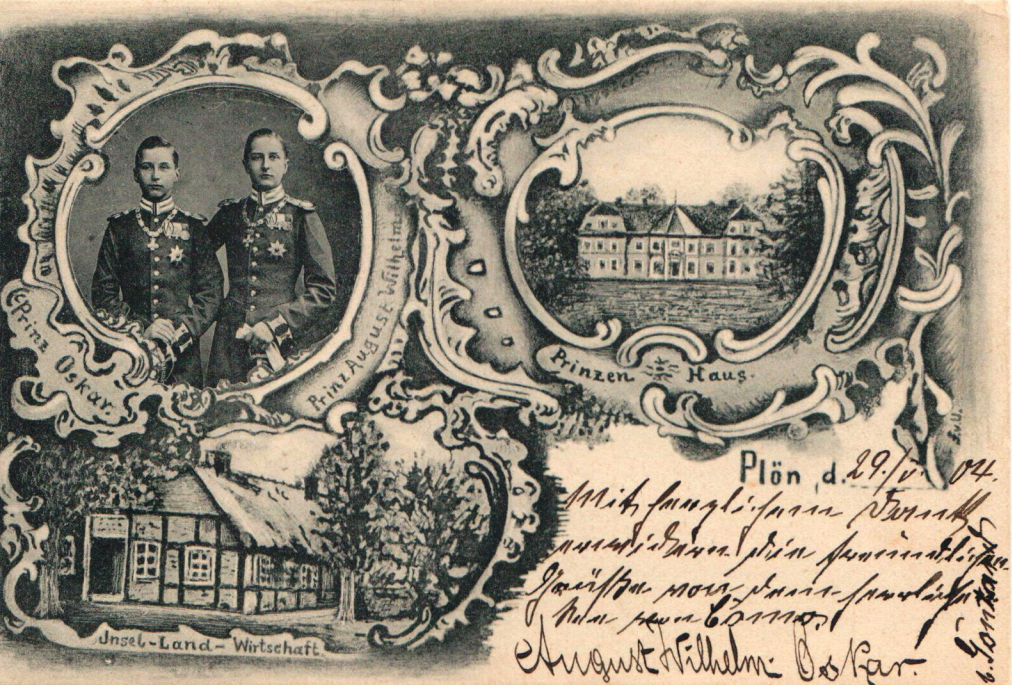 Prinz Oskar.
Prinz August Wilhelm
Prinzen Haus.
Insel-Land-Wirtschaft
Plön, d. 29./V. 04.
Mit herzlichem Dank
erwidern die freundlichen
Grüße von dem herrlichen
von Como
August Wilhelm. Oskar.